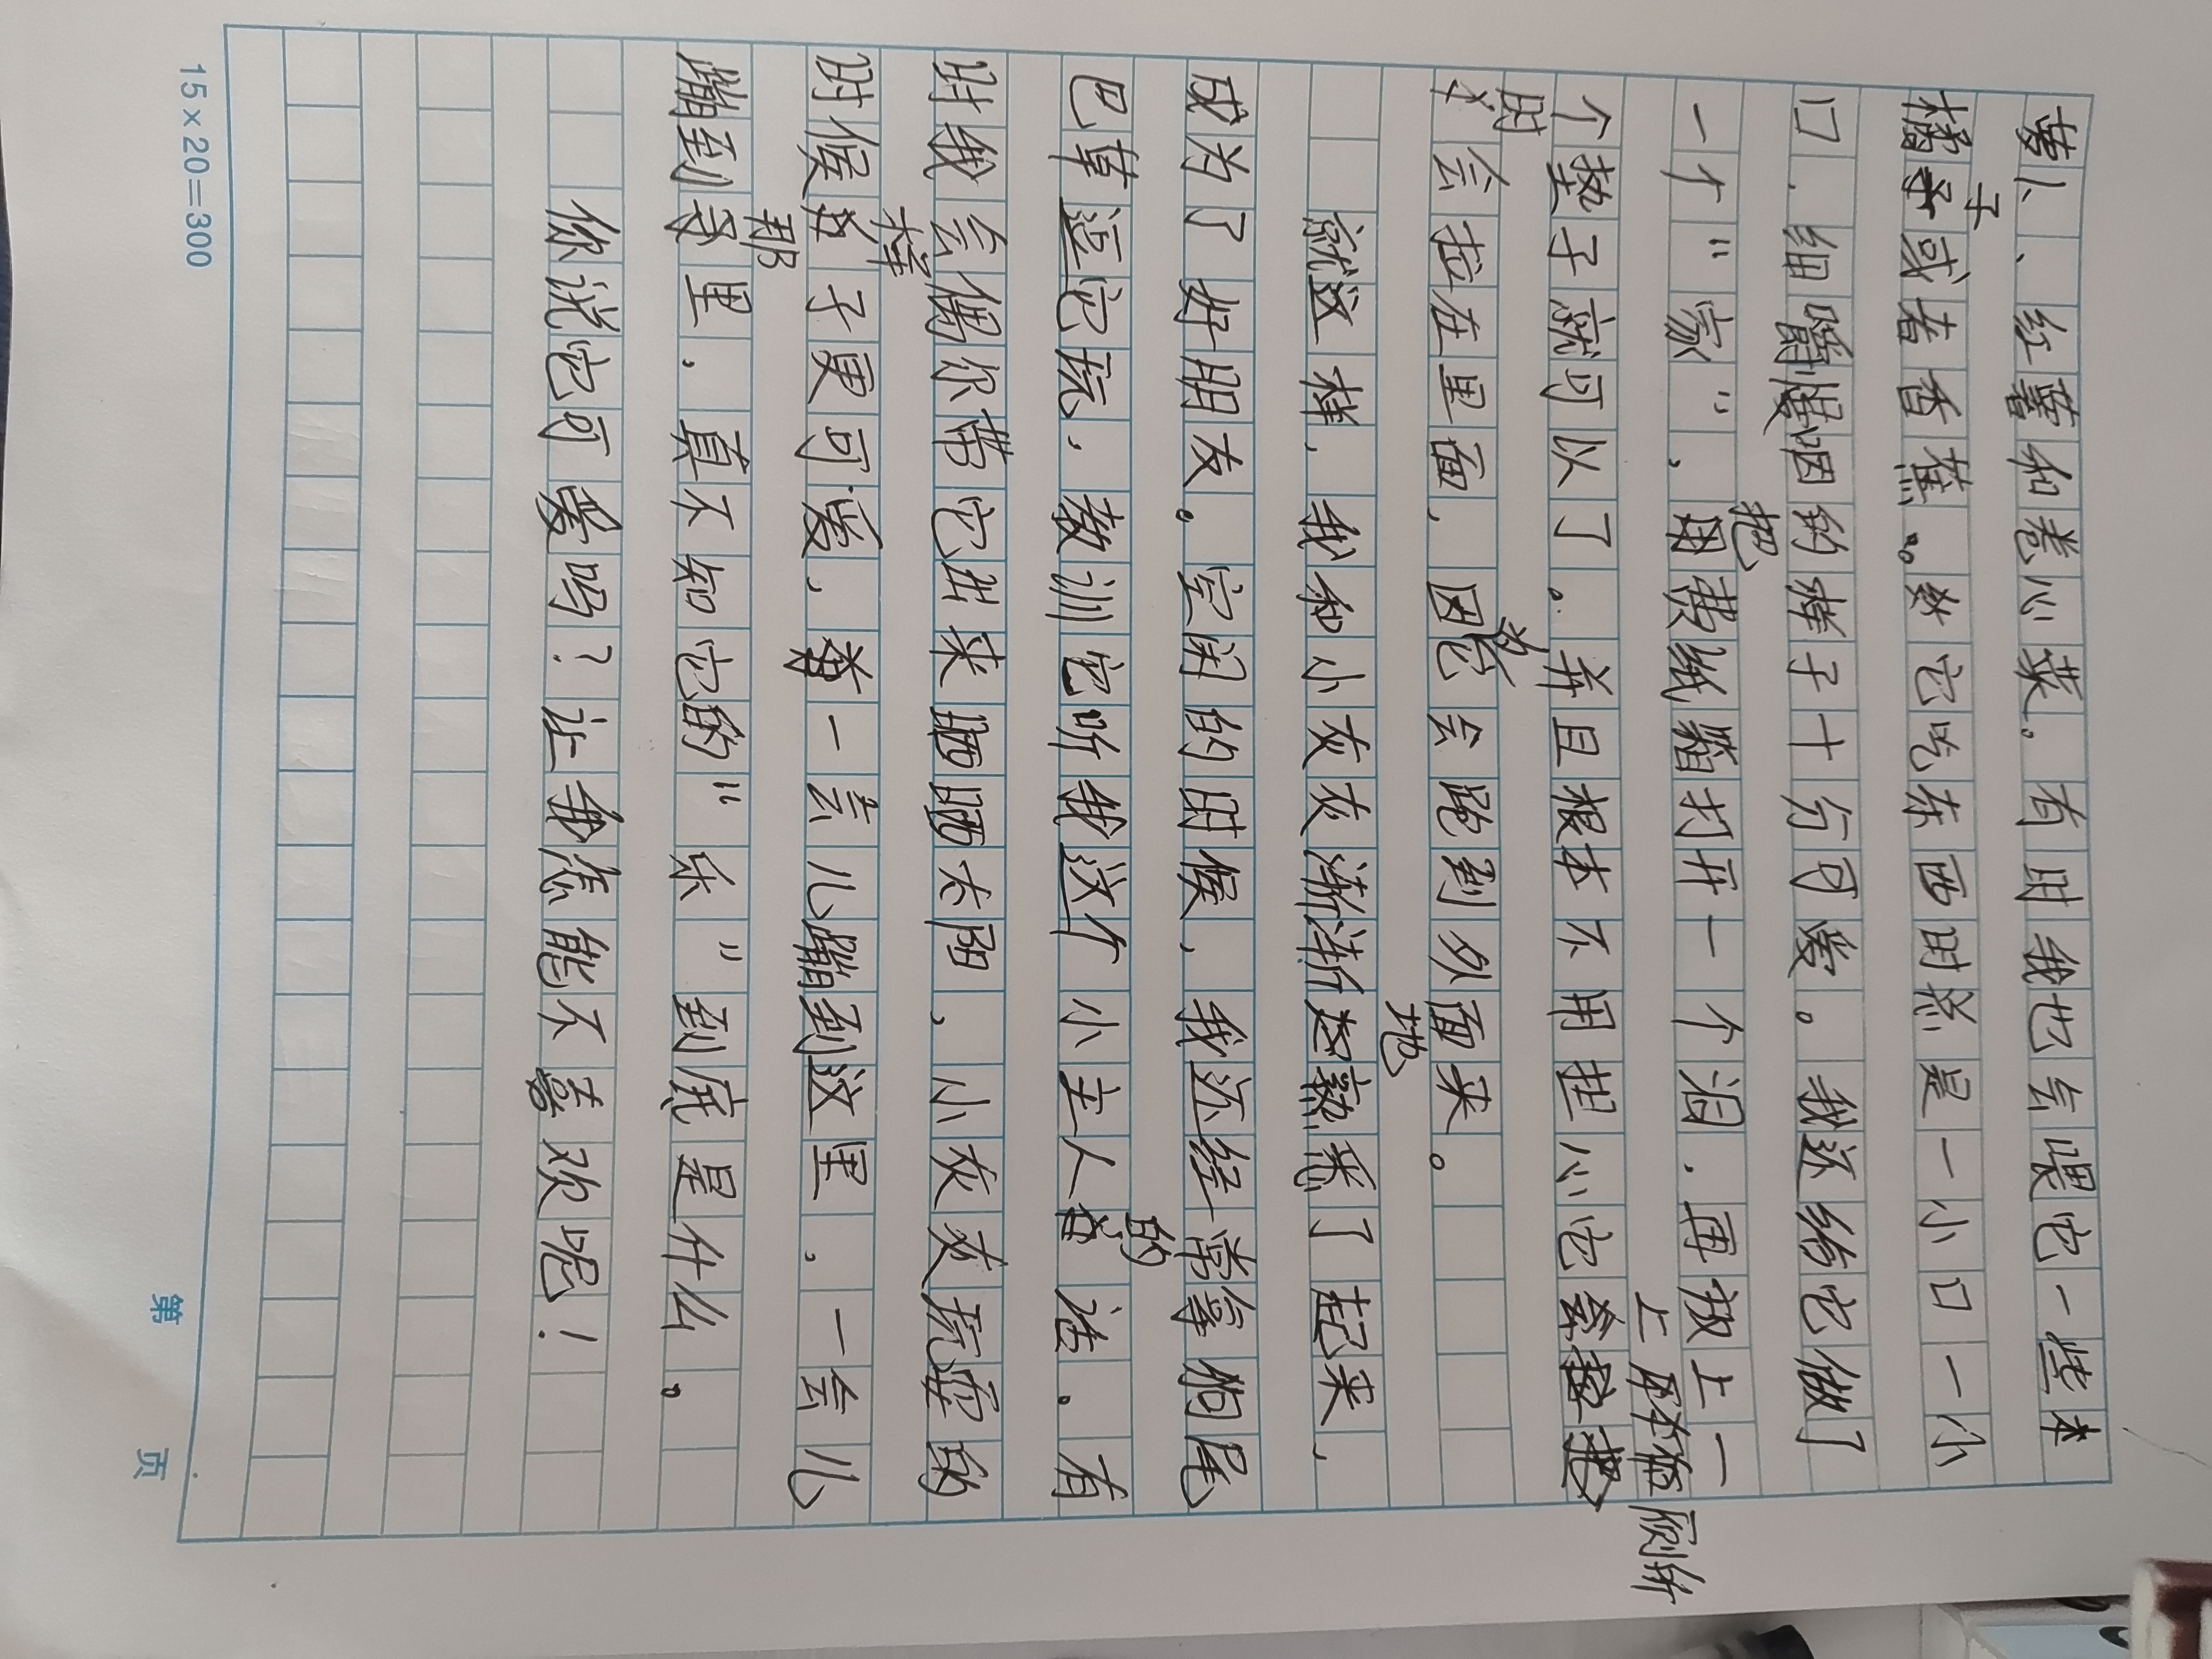 萝卜、红薯和卷心菜。有时我也会喂它一些本
子
橘子或者香蕉。。
它吃东西时总是一小口一小
口、细嚼慢咽的样子十分可爱。我还给它做了
把
一个“家”、用费纸箱打开一个洞，再放上一
上
个垫子就可以了。并且根本不用担心它会
时
会拉在里面，因它会跑到外面来。
为
就这样，我和小灰灰渐渐熟悉了起来，
地
成为了好朋友。空闲的时候，我还经常拿狗尾
巴草逗它玩，教训它听我这个小主人话。有
的
时我会偶尔带它出来晒晒太阳、小灰灰玩耍的
时候子更可爱，一会儿蹦到这里，一会儿
样
蹦到里，真不知它的“乐”到底是什么。
那
你说它可爱吗？让我怎能不喜欢呢！
15×20=300
第 页